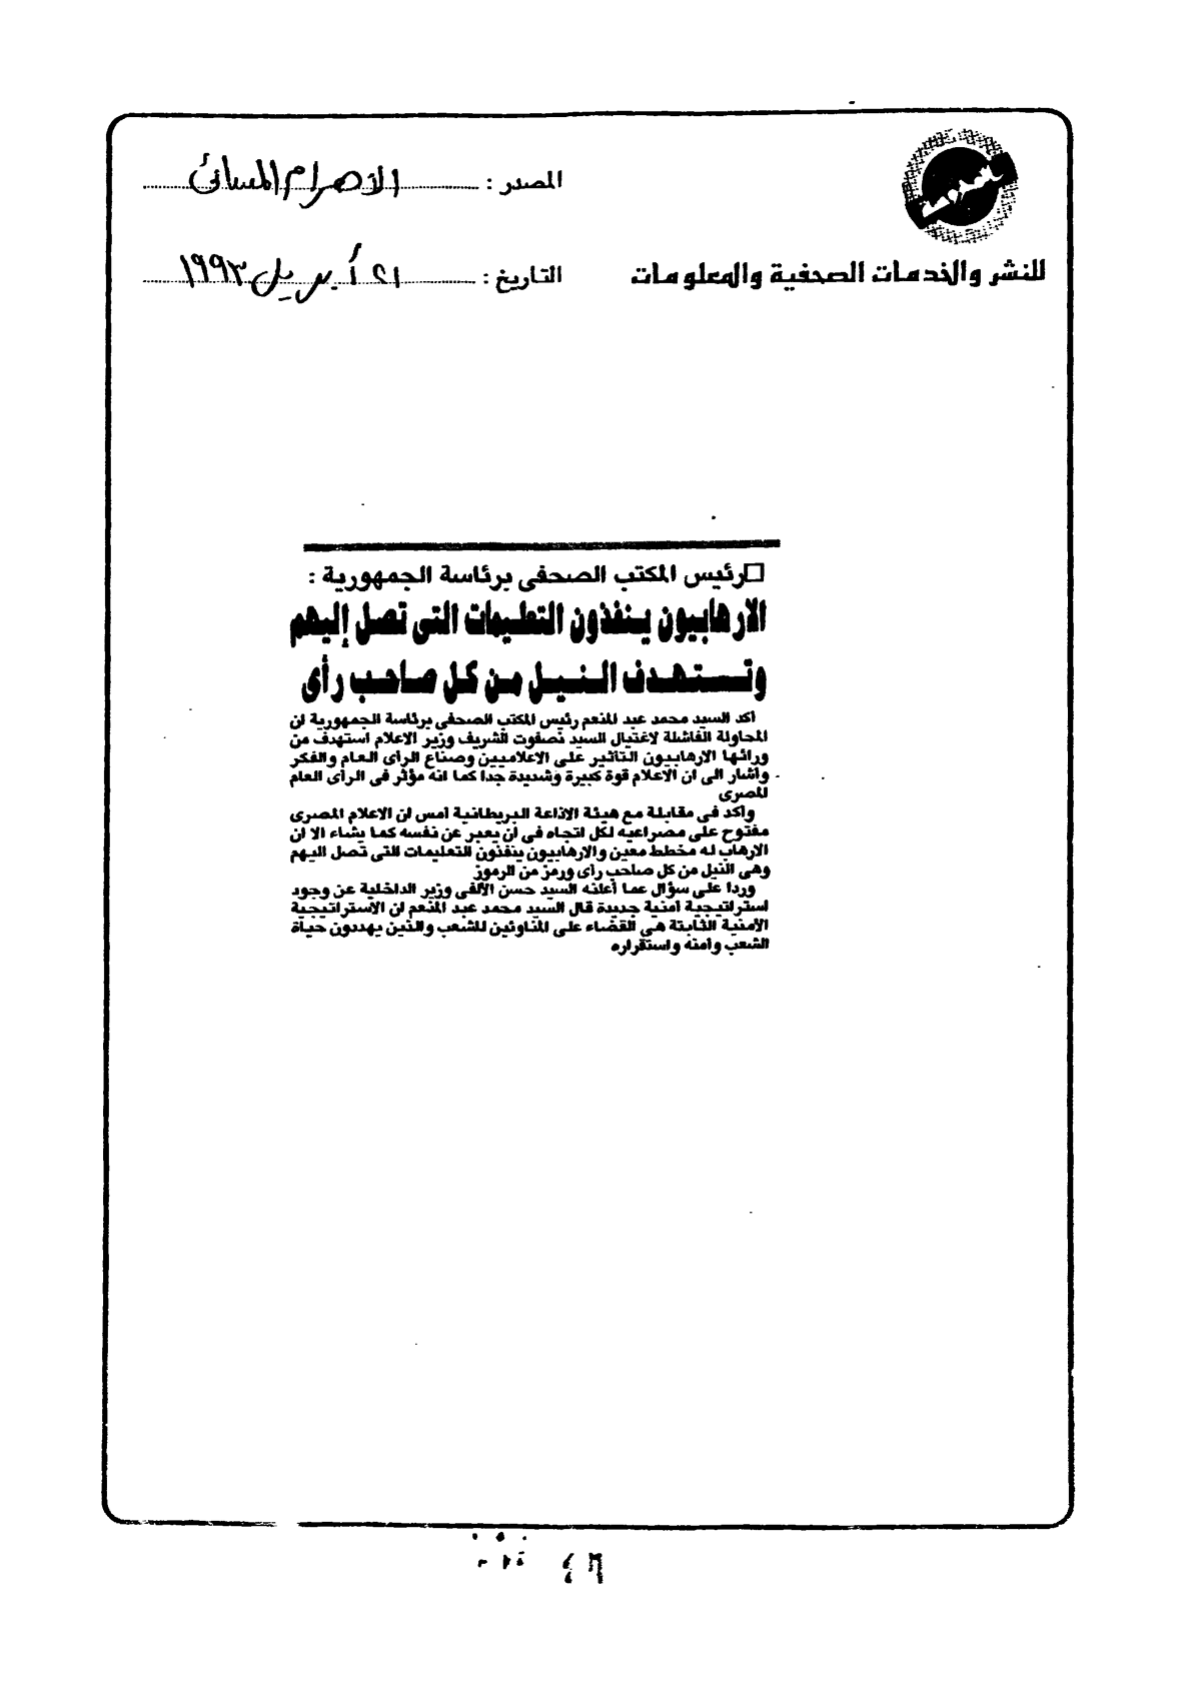 المصدر : الأهرام المسائى
للنشر والخدمات الصحفية والمعلومات
التاريخ : ٢١ أبريل ١٩٩٣
رئيس المكتب الصحفى برئاسة الجمهورية :
الارهابيون ينفذون التعليمات التى تصل إليهم
وتستهدف النيل من كل صاحب رأى
أكد السيد محمد عبد المنعم رئيس المكتب الصحفى برئاسة الجمهورية ان
المحاولة الفاشلة لاغتيال السيد صفوت الشريف وزير الاعلام استهدف من
ورائها الارهابيون التأثير على الاعلاميين وصناع الرأى العام والفكر
وأشار الى ان الاعلام قوة كبيرة وشديدة جدا كما انه مؤثر فى الرأى العام
المصرى
وأكد فى مقابلة مع هيئة الاذاعة البريطانية أمس ان الاعلام المصرى
مفتوح على مصراعيه لكل اتجاه فى ان يعبر عن نفسه كما يشاء الا ان
الارهاب له مخطط معين والارهابيون ينفذون التعليمات التى تصل اليهم
وهى النيل من كل صاحب رأى ورمز من الرموز
وردا على سؤال عما أعلنه السيد حسن الألفى وزير الداخلية عن وجود
استراتيجية امنية جديدة قال السيد محمد عبد المنعم ان الاستراتيجية
الأمنية الثابتة هى القضاء على المناوئين للشعب والذين يهددون حياة
الشعب وأمنه واستقراره